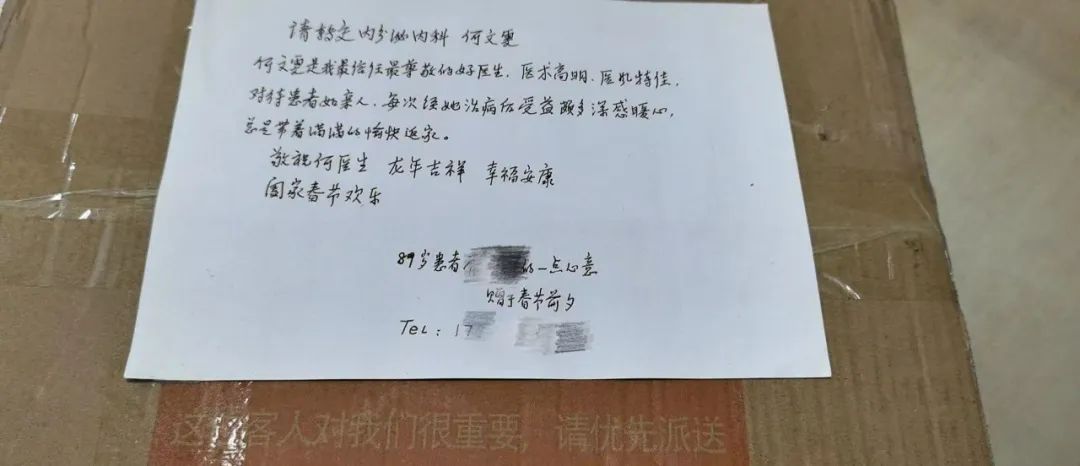 请转交内分泌内科 何文雯
何文雯是我最信任最尊敬的好医生，医术高明、医徳特佳，
对待患者如亲人，每次经她治病后受益颇多深感暖心，
总是带着满满的愉快返家。
敬祝何医生 龙年吉祥 幸福安康
阖家春节欢乐
89岁患者 的一点心意
赠于春节前夕
TEL：17
这 客人对我们很重要，请优先派送